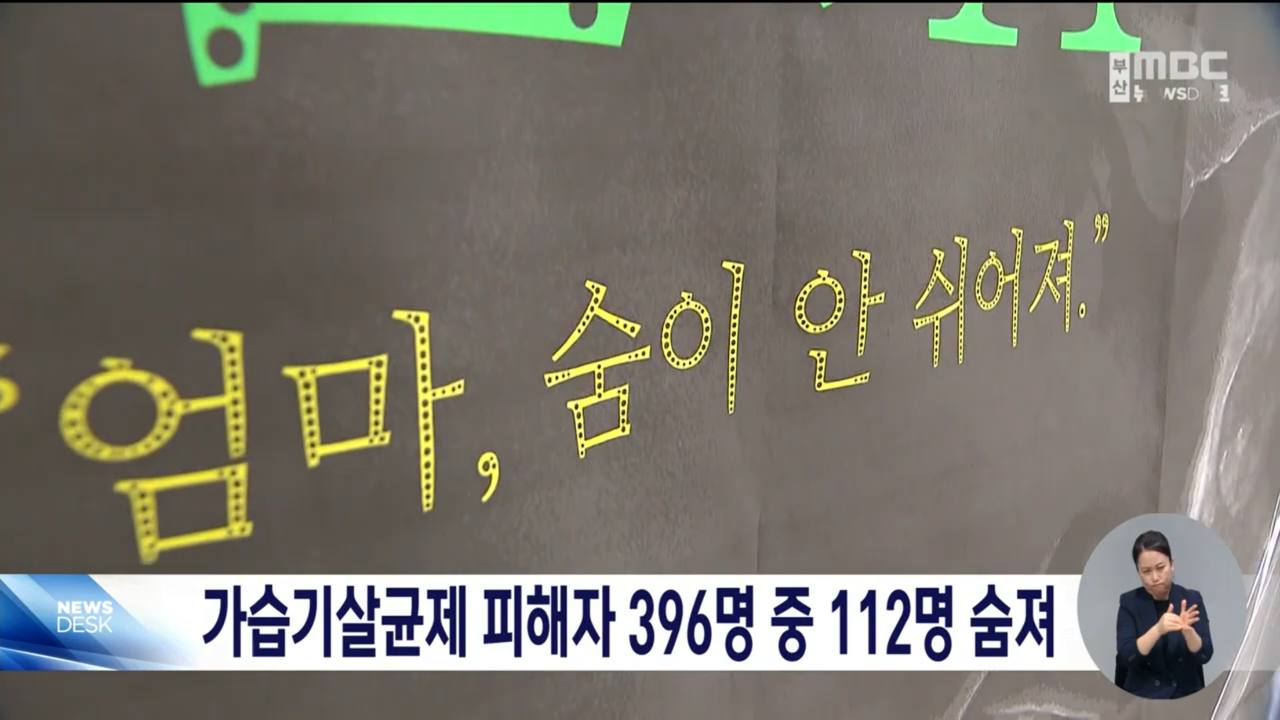 부산 MBC
뉴스NEWSDESK데스크
“엄마, 숨이 안 쉬어져.”
NEWS
DESK
가습기살균제 피해자 396명 중 112명 숨져